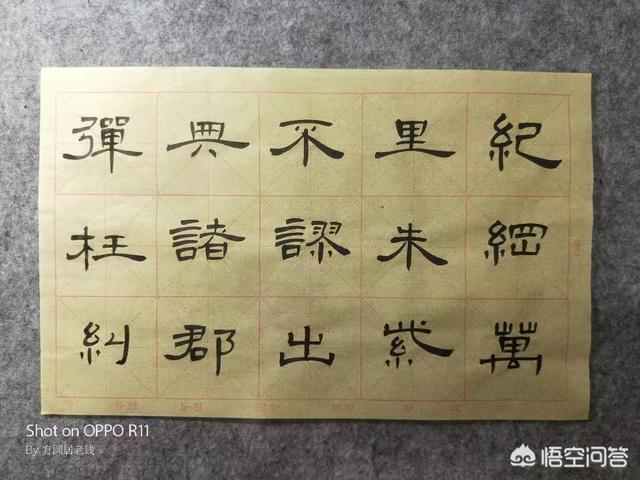 紀綱萬
里朱紫
不謬出
典諸郡
彈枉糾
Shot on OPPO R11
By 方圓居老钱
悟空问答